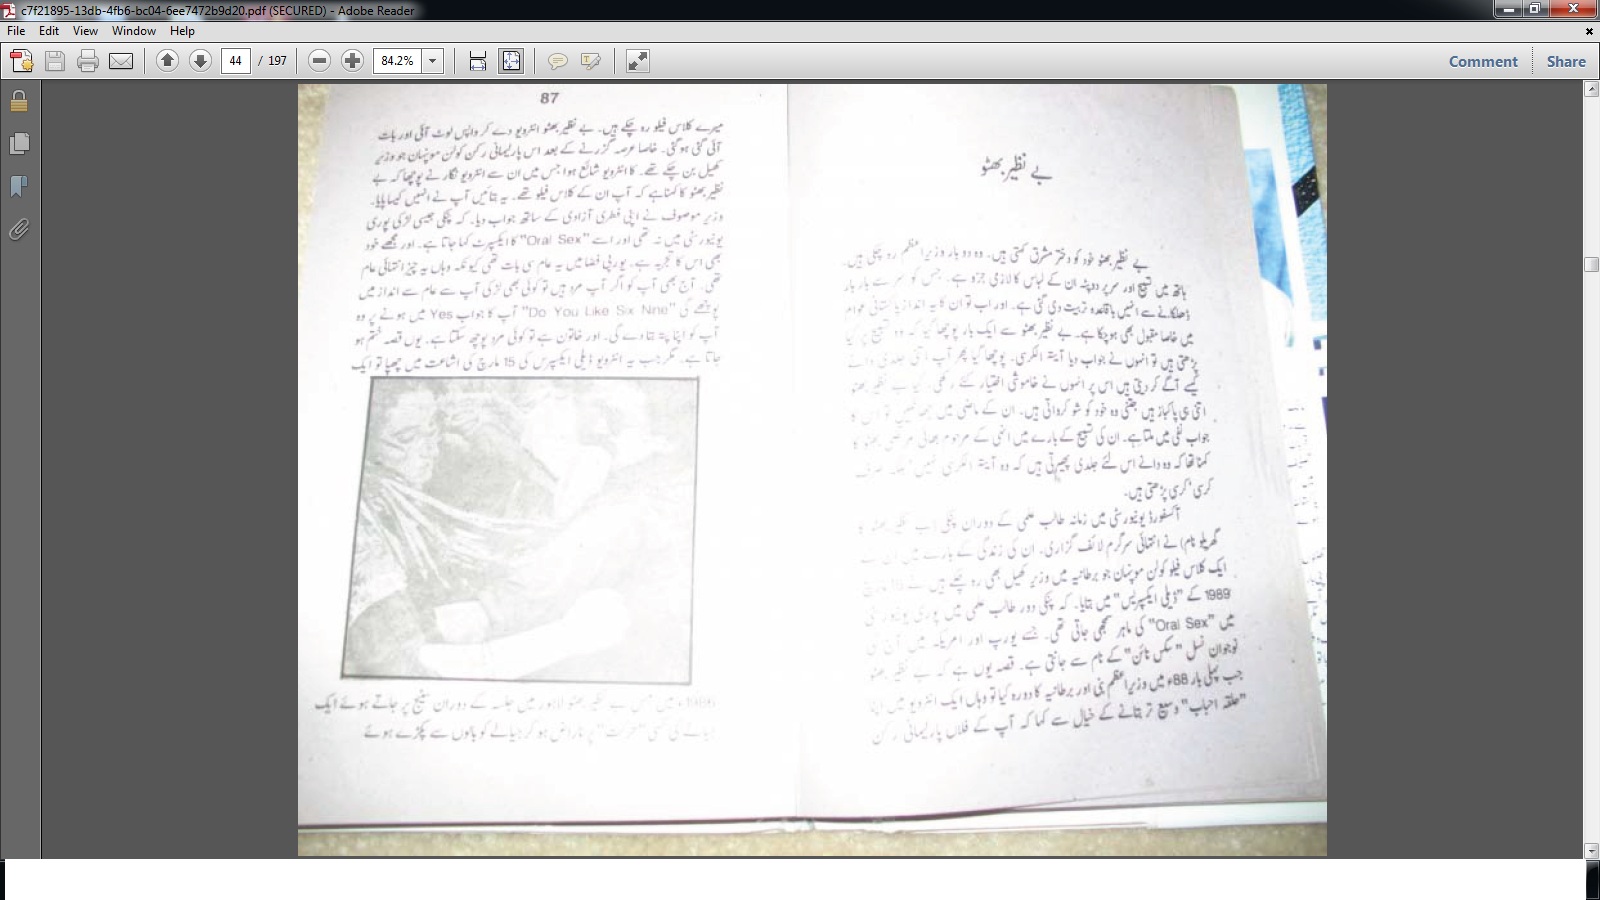 c7f21895-13db-4fb6-bc04-6ee7472b9d20.pdf (SECURED) - Adobe Reader
File Edit View Window Help
44 / 197 84.2% Comment Share
بے نظیر بھٹو
بے نظیر بھٹو خود کو دختر مشرق کہتی ہیں۔ وہ دو بار وزیراعظم رہ چکی ہیں۔
ہاتھ میں تسبیح اور سر پر دوپٹہ ان کے لباس کا لازمی جزو ہے۔ جس کو سر سے بار بار
ڈھلکانے سے انہیں باقاعدہ تربیت دی گئی ہے۔ اور اب تو ان کا یہ انداز پاکستانی عوام
میں خاصا مقبول بھی ہوچکا ہے۔ بے نظیر بھٹو سے ایک بار پوچھا گیا کہ وہ تسبیح پر کیا
پڑھتی ہیں تو انہوں نے جواب دیا آیتہ الکرسی۔ پوچھا گیا پھر آپ اتنی جلدی دانے
کیسے آگے کر دیتی ہیں اس پر انہوں نے خاموشی اختیار کئے رکھی۔ کیا بے نظیر بھٹو
اتنی ہی پاکباز ہیں جتنی وہ خود کو شو کرواتی ہیں۔ ان کے ماضی میں جھانکیں تو اس کا
جواب نفی میں ملتا ہے۔ ان کی تسبیح کے بارے میں انہی کے مرحوم بھائی مرتضی بھٹو کا
کہنا تھا کہ وہ دانے اس لئے جلدی پھیرتی ہیں کہ وہ آیتہ الکرسی نہیں بلکہ صرف
کرسی' کرسی پڑھتی ہیں۔
آکسفورڈ یونیورسٹی میں زمانہ طالب علمی کے دوران پنکی (بے نظیر بھٹو کا
گھریلو نام) نے انتہائی سرگرم لائف گزاری۔ ان کی زندگی کے بارے میں ان کے
ایک کلاس فیلو کولن موینہان جو برطانیہ میں وزیر کھیل بھی رہ چکے ہیں نے 15 مارچ
1989 کے "ڈیلی ایکسپریس" میں بتایا۔ کہ پنکی دور طالب علمی میں پوری یونیورسٹی
میں "Oral Sex" کی ماہر سمجھی جاتی تھی۔ جسے یورپ اور امریکہ میں آج کی
نوجوان نسل "سکس نائن" کے نام سے جانتی ہے۔ قصہ یوں ہے کہ بے نظیر بھٹو
جب پہلی بار 88ء میں وزیراعظم بنی اور برطانیہ کا دورہ کیا تو وہاں ایک انٹرویو میں اپنا
"حلقہ احباب" وسیع تر بتانے کے خیال سے کہا کہ آپ کے فلاں پارلیمانی رکن
87
میرے کلاس فیلو رہ چکے ہیں۔ بے نظیر بھٹو انٹرویو دے کر واپس لوٹ آئی اور بات
آئی گئی ہو گئی۔ خاصا عرصہ گزرنے کے بعد اس پارلیمانی رکن کولن موینہان جو وزیر
کھیل بن چکے تھے۔ کا انٹرویو شائع ہوا جس میں ان سے انٹرویو نگار نے پوچھا کہ بے
نظیر بھٹو کا کہنا ہے کہ آپ ان کے کلاس فیلو تھے۔ یہ بتائیں آپ نے انہیں کیسا پایا۔
وزیر موصوف نے اپنی فطری آزادی کے ساتھ جواب دیا۔ کہ پنکی جیسی لڑکی پوری
یونیورسٹی میں نہ تھی اور اسے "Oral Sex" کا ایکسپرٹ کہا جاتا ہے۔ اور مجھے خود
بھی اس کا تجربہ ہے۔ یورپی فضا میں یہ عام سی بات تھی کیونکہ وہاں یہ چیز انتہائی عام
تھی۔ آج بھی آپ کو اگر آپ مرد ہیں تو کوئی بھی لڑکی آپ سے عام سے انداز میں
پوچھے گی "Do You Like Six Nine" آپ کا جواب Yes میں ہونے پر وہ
آپ کو اپنا پتہ بتا دے گی۔ اور خاتون ہے تو کوئی مرد پوچھ سکتا ہے۔ یوں قصہ ختم ہو
جاتا ہے۔ مگر جب یہ انٹرویو ڈیلی ایکسپرس کی 15 مارچ کی اشاعت میں چھپا تو ایک
1986ء میں مس بے نظیر بھٹو لاہور میں جلسہ کے دوران سٹیج پر جاتے ہوئے ایک
جیالے کی کسی "حرکت" پر ناراض ہو کر جیالے کو بالوں سے پکڑے ہوئے